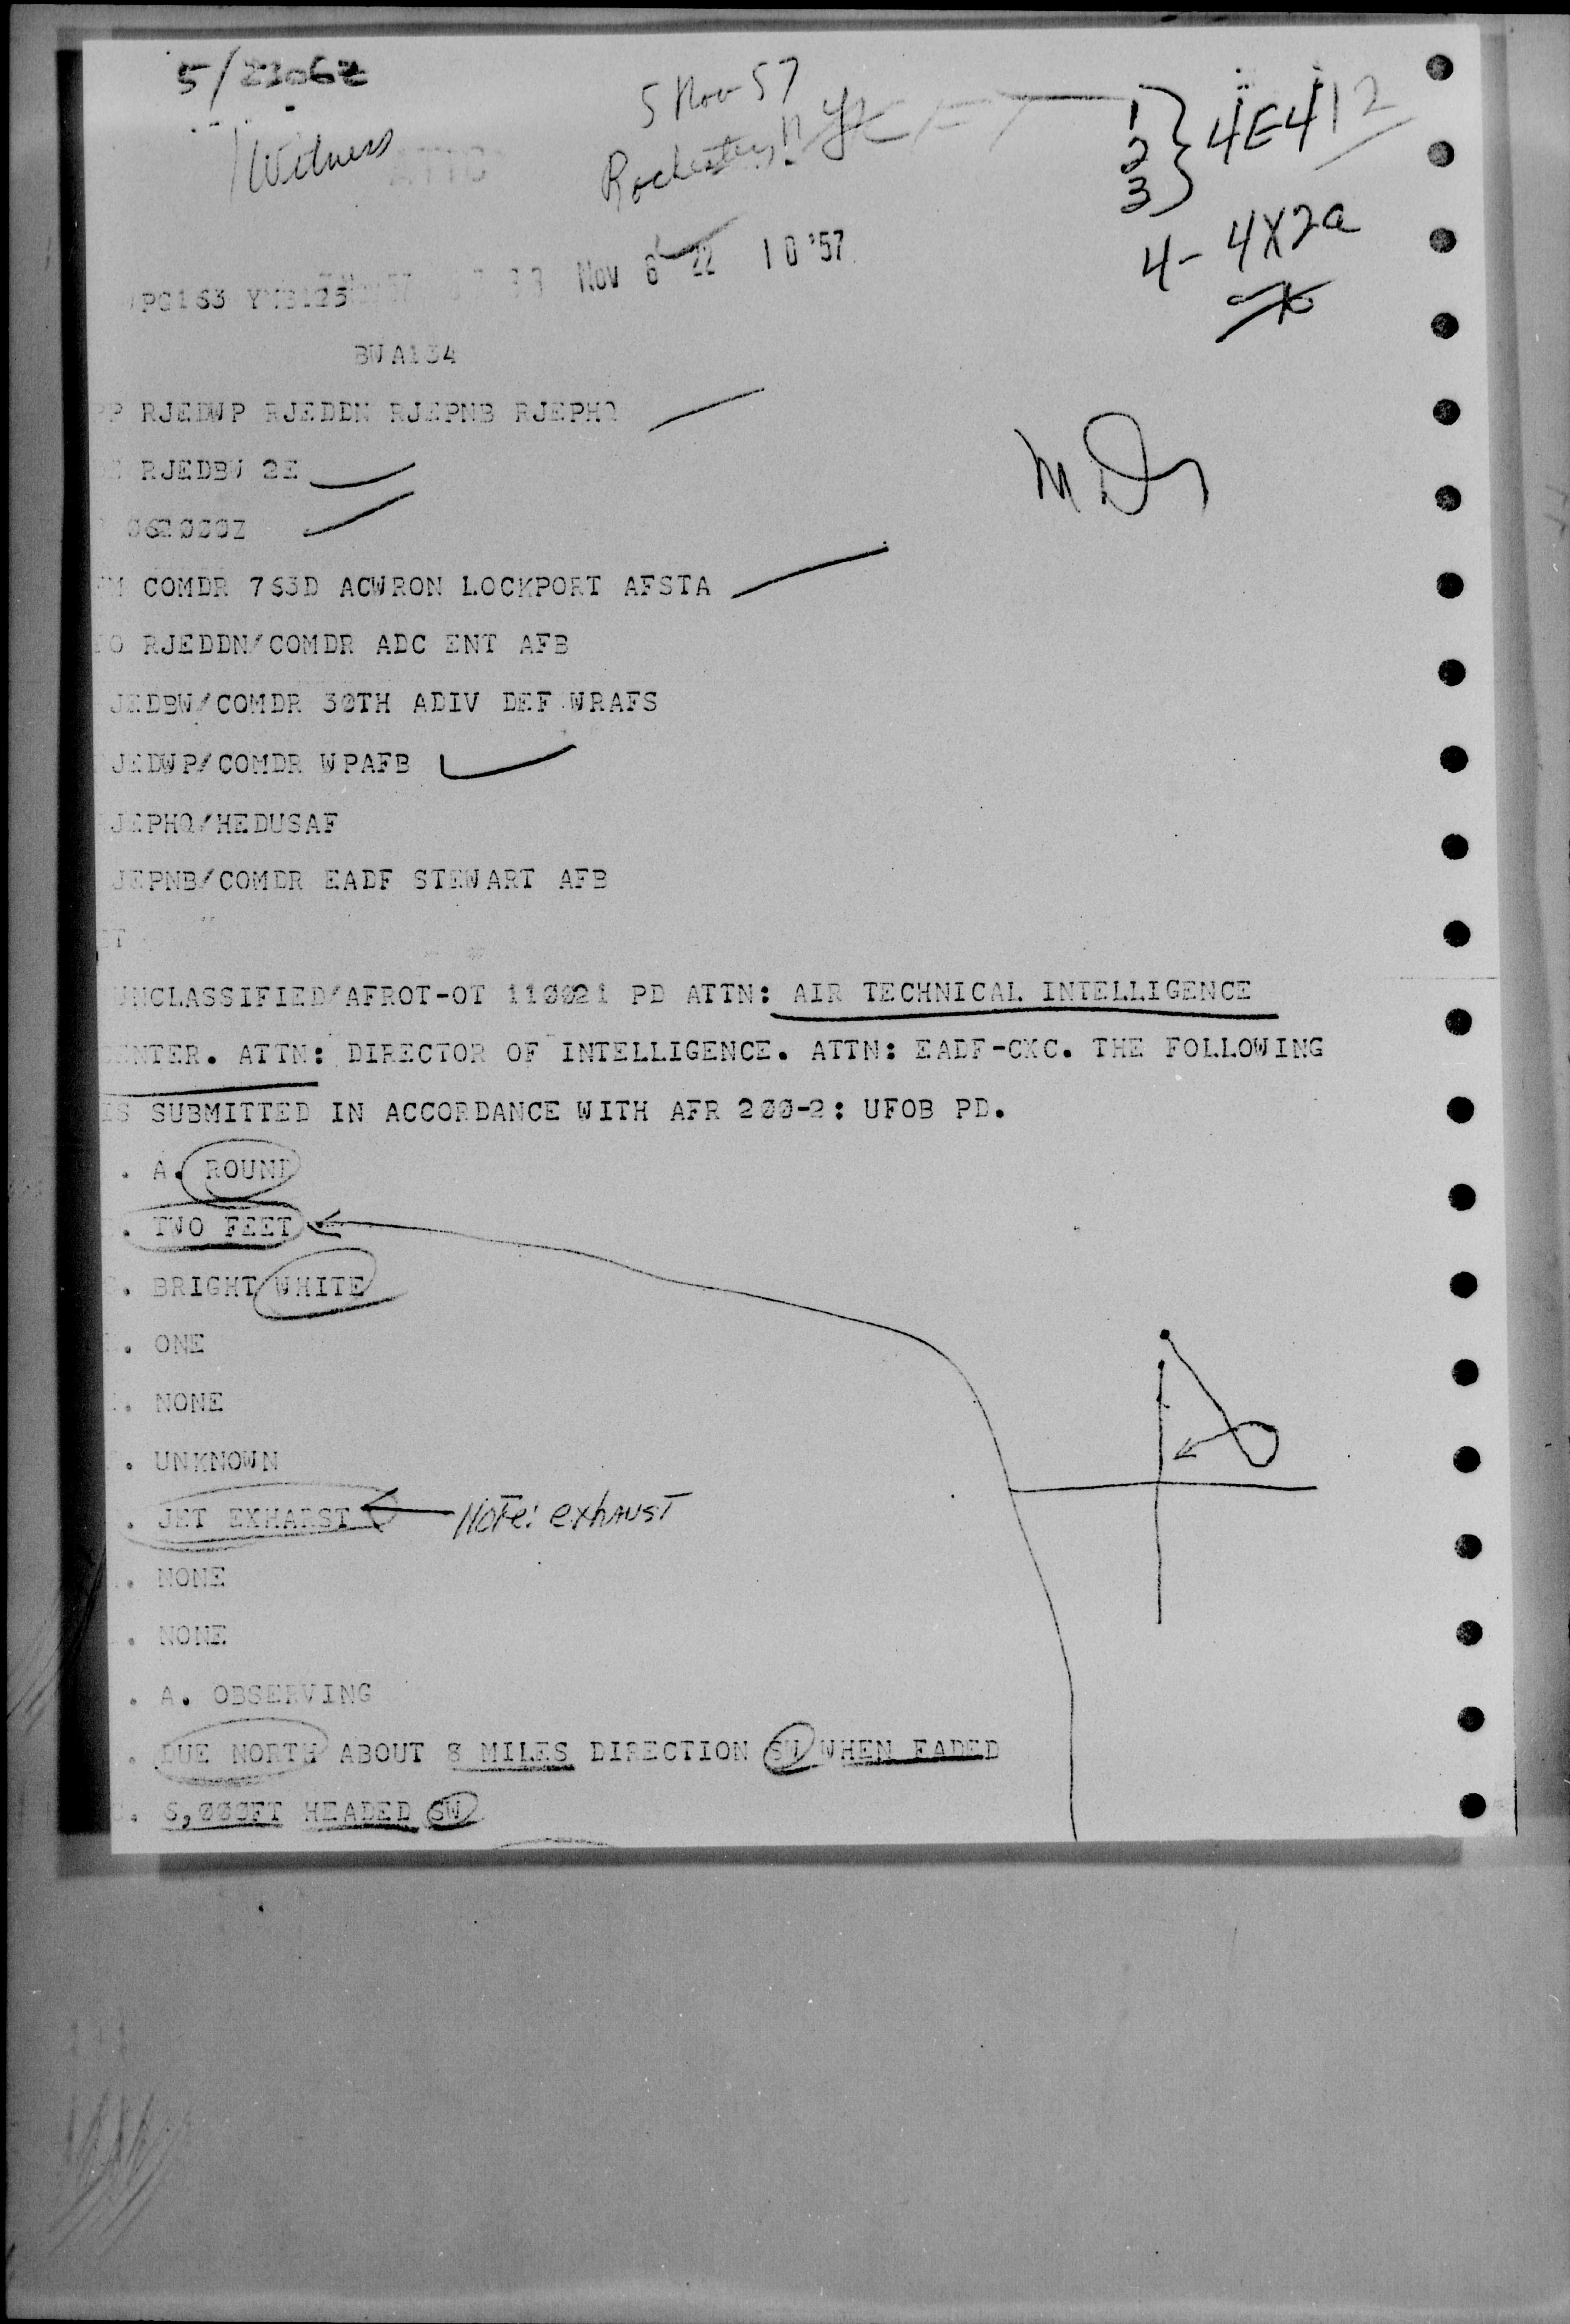 5/2306Z
5 Nov 57
1 Witness
Rochester N.Y.
1
2
3
4E412
4- 4X2a
Nov 6 22 10 '57
BWA134
PP RJEDWP RJEDDN RJEPNB RJEPHQ
RJEDBW 2E
062000Z
FM COMDR 763D ACWRON LOCKPORT AFSTA
TO RJEDDN/COMDR ADC ENT AFB
JEDBW/COMDR 30TH ADIV DEF WRAFS
JEDWP/COMDR WPAFB
JEPHQ/HEDUSAF
JEPNB/COMDR EADF STEWART AFB
BT
UNCLASSIFIED/AFROT-OT 110021 PD ATTN: AIR TECHNICAL INTELLIGENCE
CENTER. ATTN: DIRECTOR OF INTELLIGENCE. ATTN: EADF-CXC. THE FOLLOWING
IS SUBMITTED IN ACCORDANCE WITH AFR 200-2: UFOB PD.
. A. ROUND
. TWO FEET
. BRIGHT WHITE
. ONE
. NONE
. UNKNOWN
. JET EXHARST Note: exhaust
. NONE
. NONE
. A. OBSERVING
. DUE NORTH ABOUT 8 MILES DIRECTION SW WHEN FADED
. 6,000FT HEADED SW